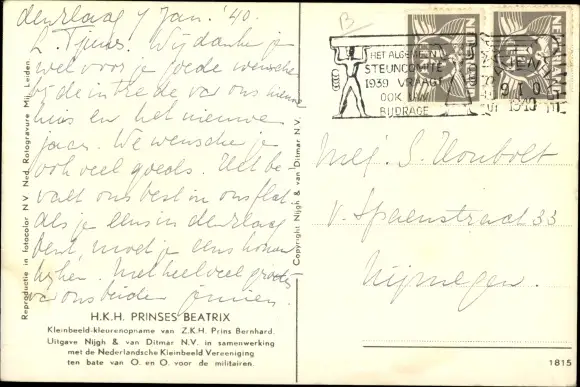 den Haag 7 Jan. '40.
L. Tjuus. Wij danken je
wel voor je goede wenschen
bij de intrede van ons nieuwe
huis en het nieuwe
jaar. We wenschen je
ook veel goeds. Het be-
valt ons best in ons flat.
Als je eens in den Haag
bent, moet je eens komen
kijken. Met heel veel groeten
van ons beiden
H.K.H. PRINSES BEATRIX
Kleinbeeld-kleurenopname van Z.K.H. Prins Bernhard.
Uitgave Nijgh & van Ditmar N.V. in samenwerking
met de Nederlandsche Kleinbeeld Vereeniging
ten bate van O. en O. voor de militairen.
Reproductie in fotocolor N.V. Ned. Rotogravure Mij. Leiden.
Copyright Nijgh & van Ditmar N.V.
B
HET ALGEMEEN
STEUNCOMITÉ
1939 VRAAGT
OOK UW
BIJDRAGE
NEDERLAND
1940
Mej. S.
v. Spaenstraat 33
Nijmegen.
1815